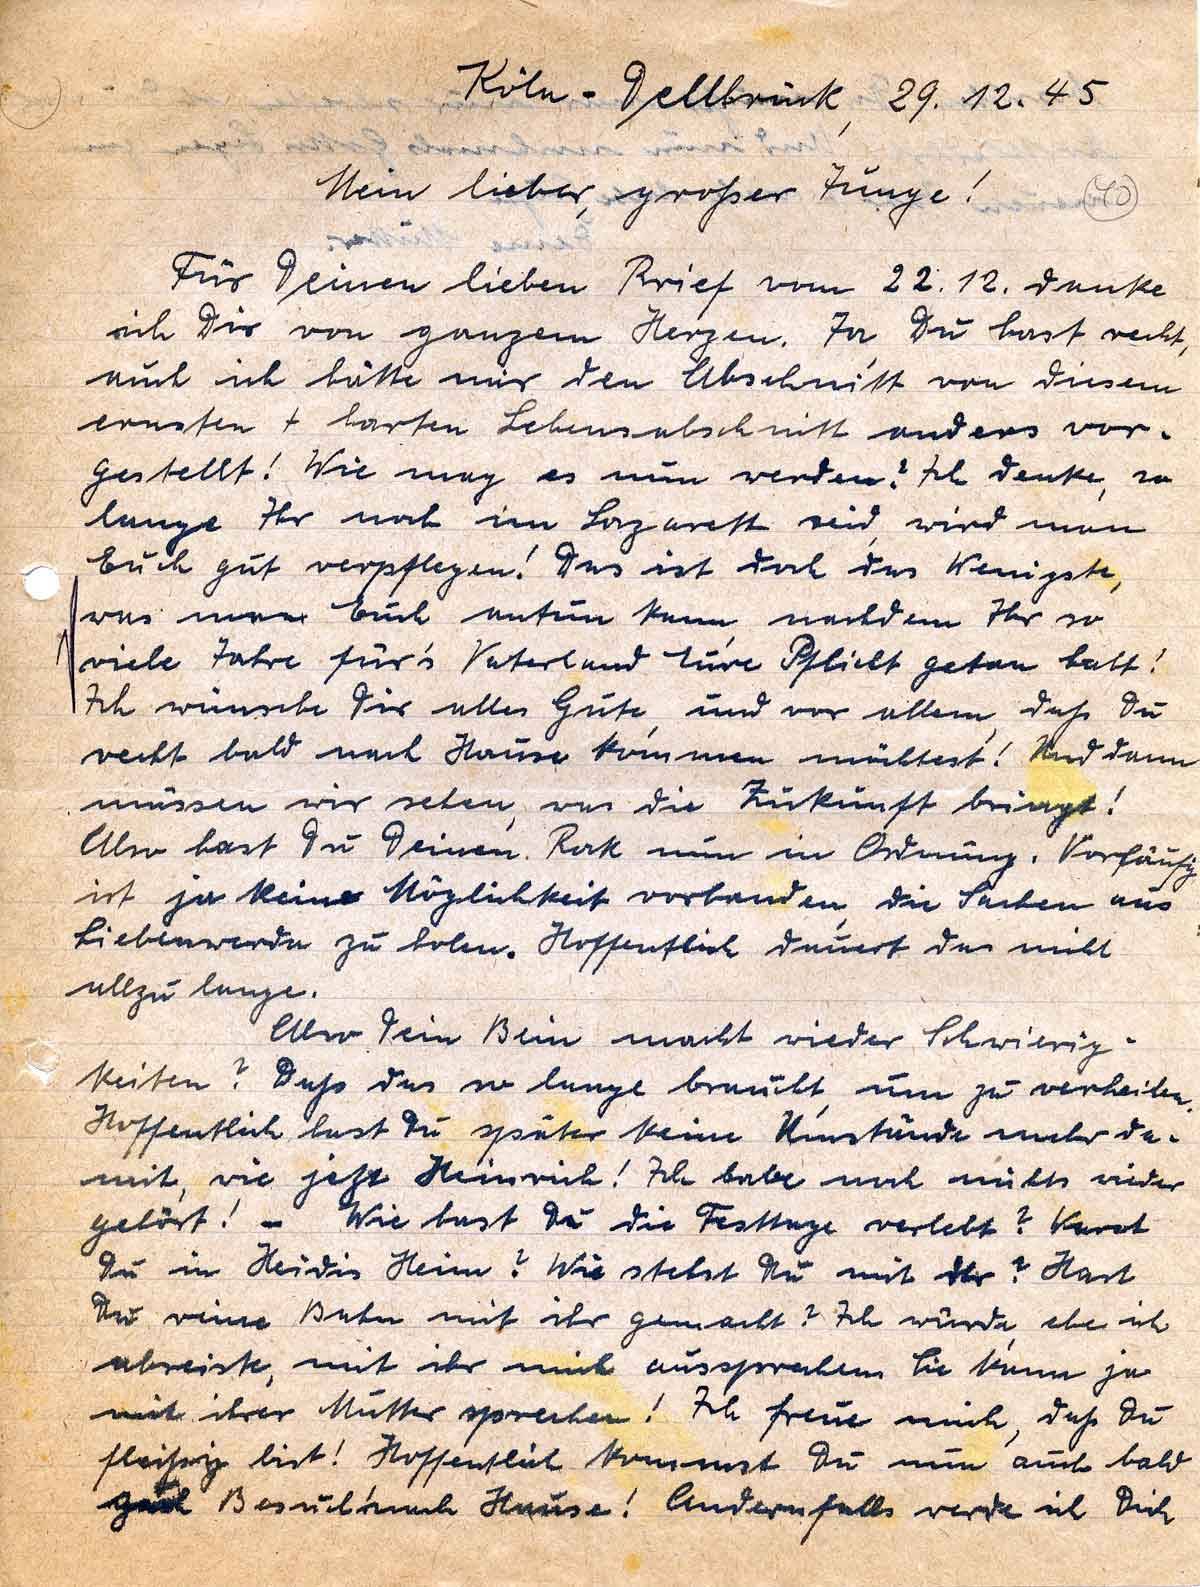 Köln - Dellbrück, 29. 12. 45
Mein lieber, großer Junge!
40
Für Deinen lieben Brief vom 22.12. danke
ich Dir von ganzem Herzen. Ja, Du hast recht,
auch ich hätte mir den Abschnitt von diesem
ernsten + harten Lebensabschnitt anders vor-
gestellt! Wie mag es nun werden? Ich denke, so
lange Ihr noch im Lazarett seid, wird man
Euch gut verpflegen! Das ist doch das Wenigste,
was man Euch antun kann, nachdem Ihr so
viele Jahre für's Vaterland Eure Pflicht getan habt!
Ich wünsche Dir alles Gute, und vor allem, daß Du
recht bald nach Hause kommen möchtest! Und dann
müssen wir sehen, was die Zukunft bringt!
Also hast Du Deinen Rock nun in Ordnung. Vorläufig
ist ja keine Möglichkeit vorhanden, die Sachen aus
Liebenwerda zu holen. Hoffentlich dauert das nicht
allzu lange.
Also Dein Bein macht wieder Schwierig-
keiten? Daß das so lange braucht, um zu verheilen.
Hoffentlich hast Du später keine Umstände mehr da-
mit, wie jetzt Heinrich! Ich habe noch nichts wieder
gehört! - Wie hast Du die Festtage verlebt? Warst
Du in Heidis Heim? Wie stehst Du mit ihr? Hast
Du reine Bahn mit ihr gemacht? Ich würde, ehe ich
abreiste, mit ihr mich aussprechen. Sie kann ja
mit ihrer Mutter sprechen! Ich freue mich, daß Du
fleißig bist! Hoffentlich kommst Du nun auch bald
Besuch nach Hause! Andernfalls werde ich Dich